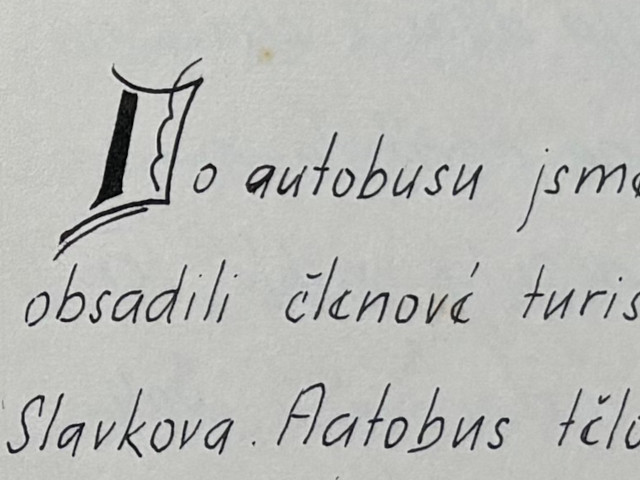 Do autobusu jsme
obsadili členové turis
Slavkova. Aatobus